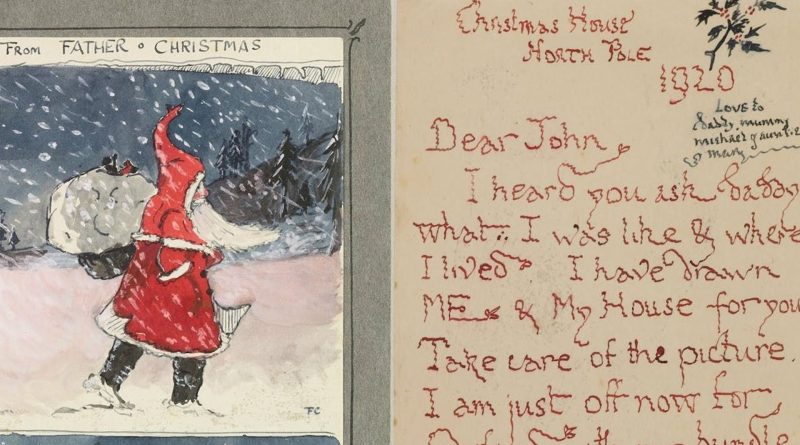 FROM FATHER · CHRISTMAS
FC
Christmas House
NORTH POLE
1920
Love to
daddy, mummy
michael & auntie
& mary
Dear John,
I heard you ask daddy
what I was like & where
I lived. I have drawn
ME & My House for you
Take care of the picture.
I am just off now for